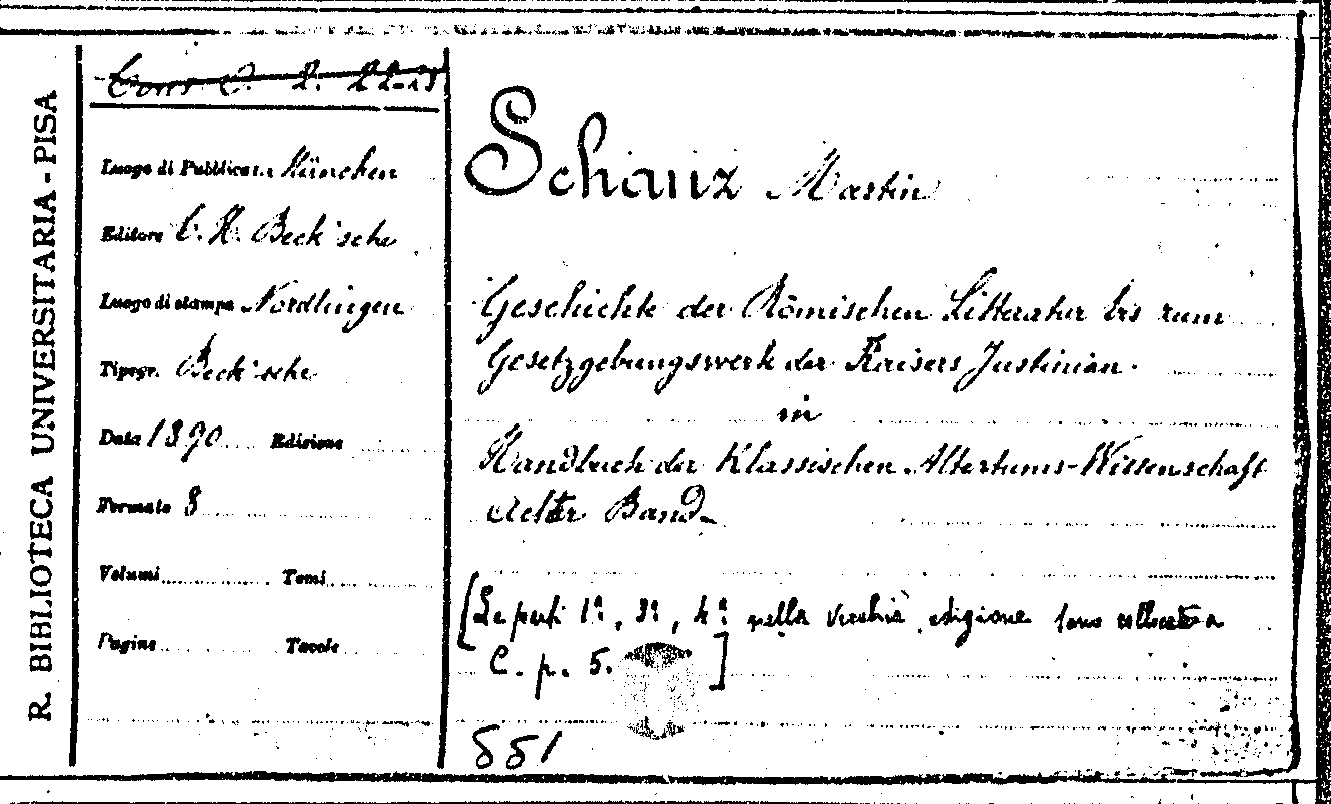 R. BIBLIOTECA UNIVERSITARIA - PISA
Cons. C. 2. 22-23
Luogo di Pubblicaz. München
Editore C. H. Beck'sche
Luogo di stampa Nördlingen
Tipogr. Beck'sche
Data 1890 Edizione
Formato 8
Volumi Tomi
Pagine Tavole
Schanz Martin
Geschichte der Römischen Litteratur bis zum
Gesetzgebungswerk der Kaisers Justinian.
in
Handbuch der Klassischen Altertums-Wissenschaft
Achter Band
[Le parti 1ª, 3ª, 4ª nella vecchia edizione sono collocate a
C. p. 5. ]
551